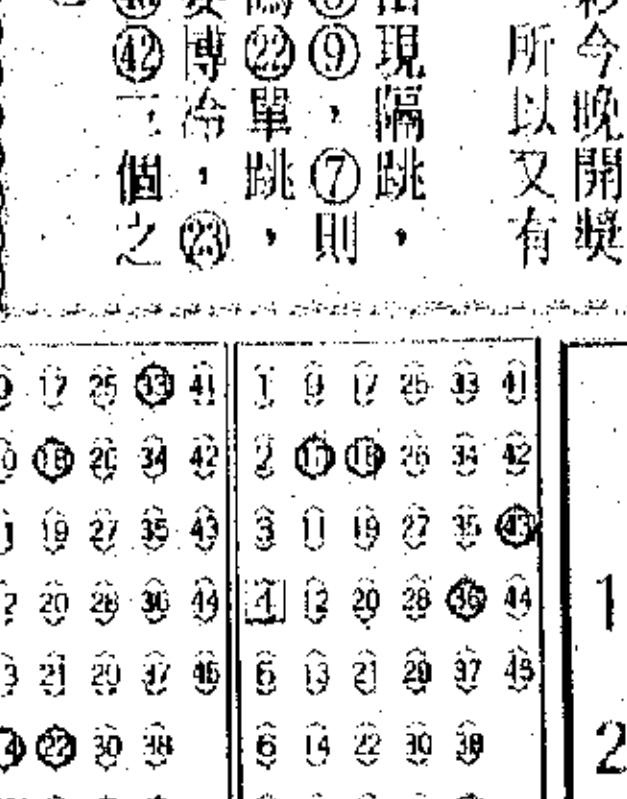 今晚開獎
所以又有
現隔跳，
⑨，⑦則
㉒單跳，
博冷，㉓
㊷二個之
17 25 33 41
18 26 34 42
19 27 35 43
20 28 36 44
21 29 37 45
22 30 38
1 9 17 25 33 41
2 18 26 34 42
3 11 19 27 35 43
4 12 20 28 36 44
13 21 29 37 45
6 14 22 30 38
1
2